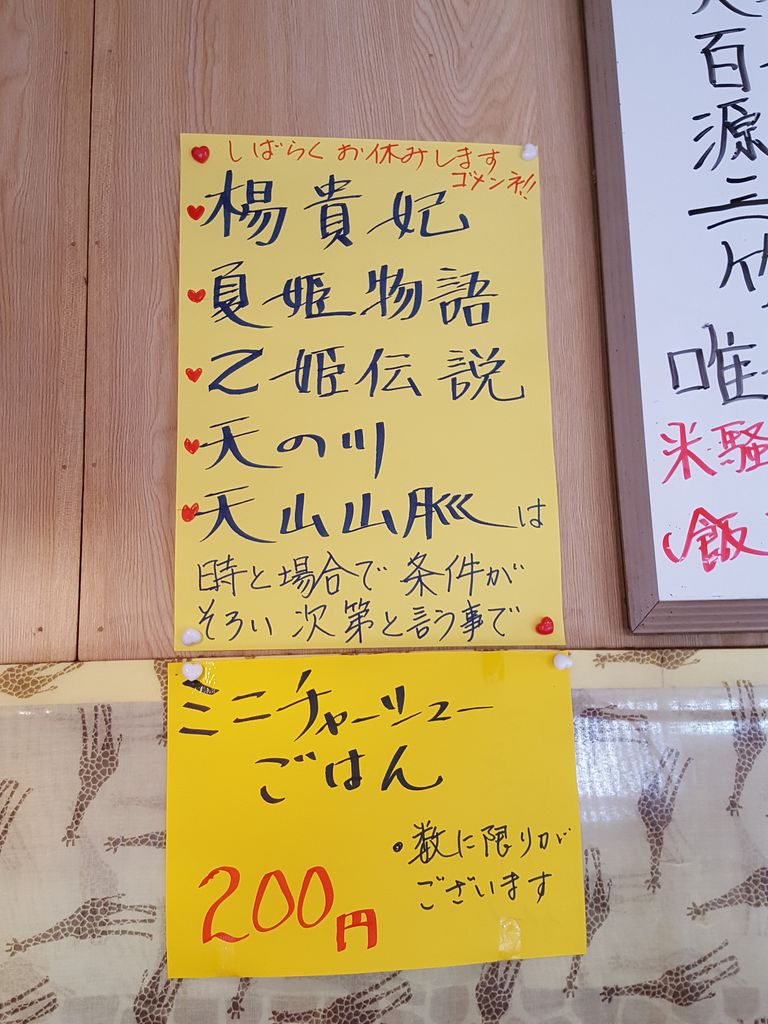 しばらくお休みします
ゴメンネ!!
楊貴妃
夏姫物語
乙姫伝説
天の川
天山山脈は
時と場合で条件が
そろい次第と言う事で
ミニチャーシュー
ごはん
・数に限りが
ございます
200円
百
源
三
唯
米騒
飯